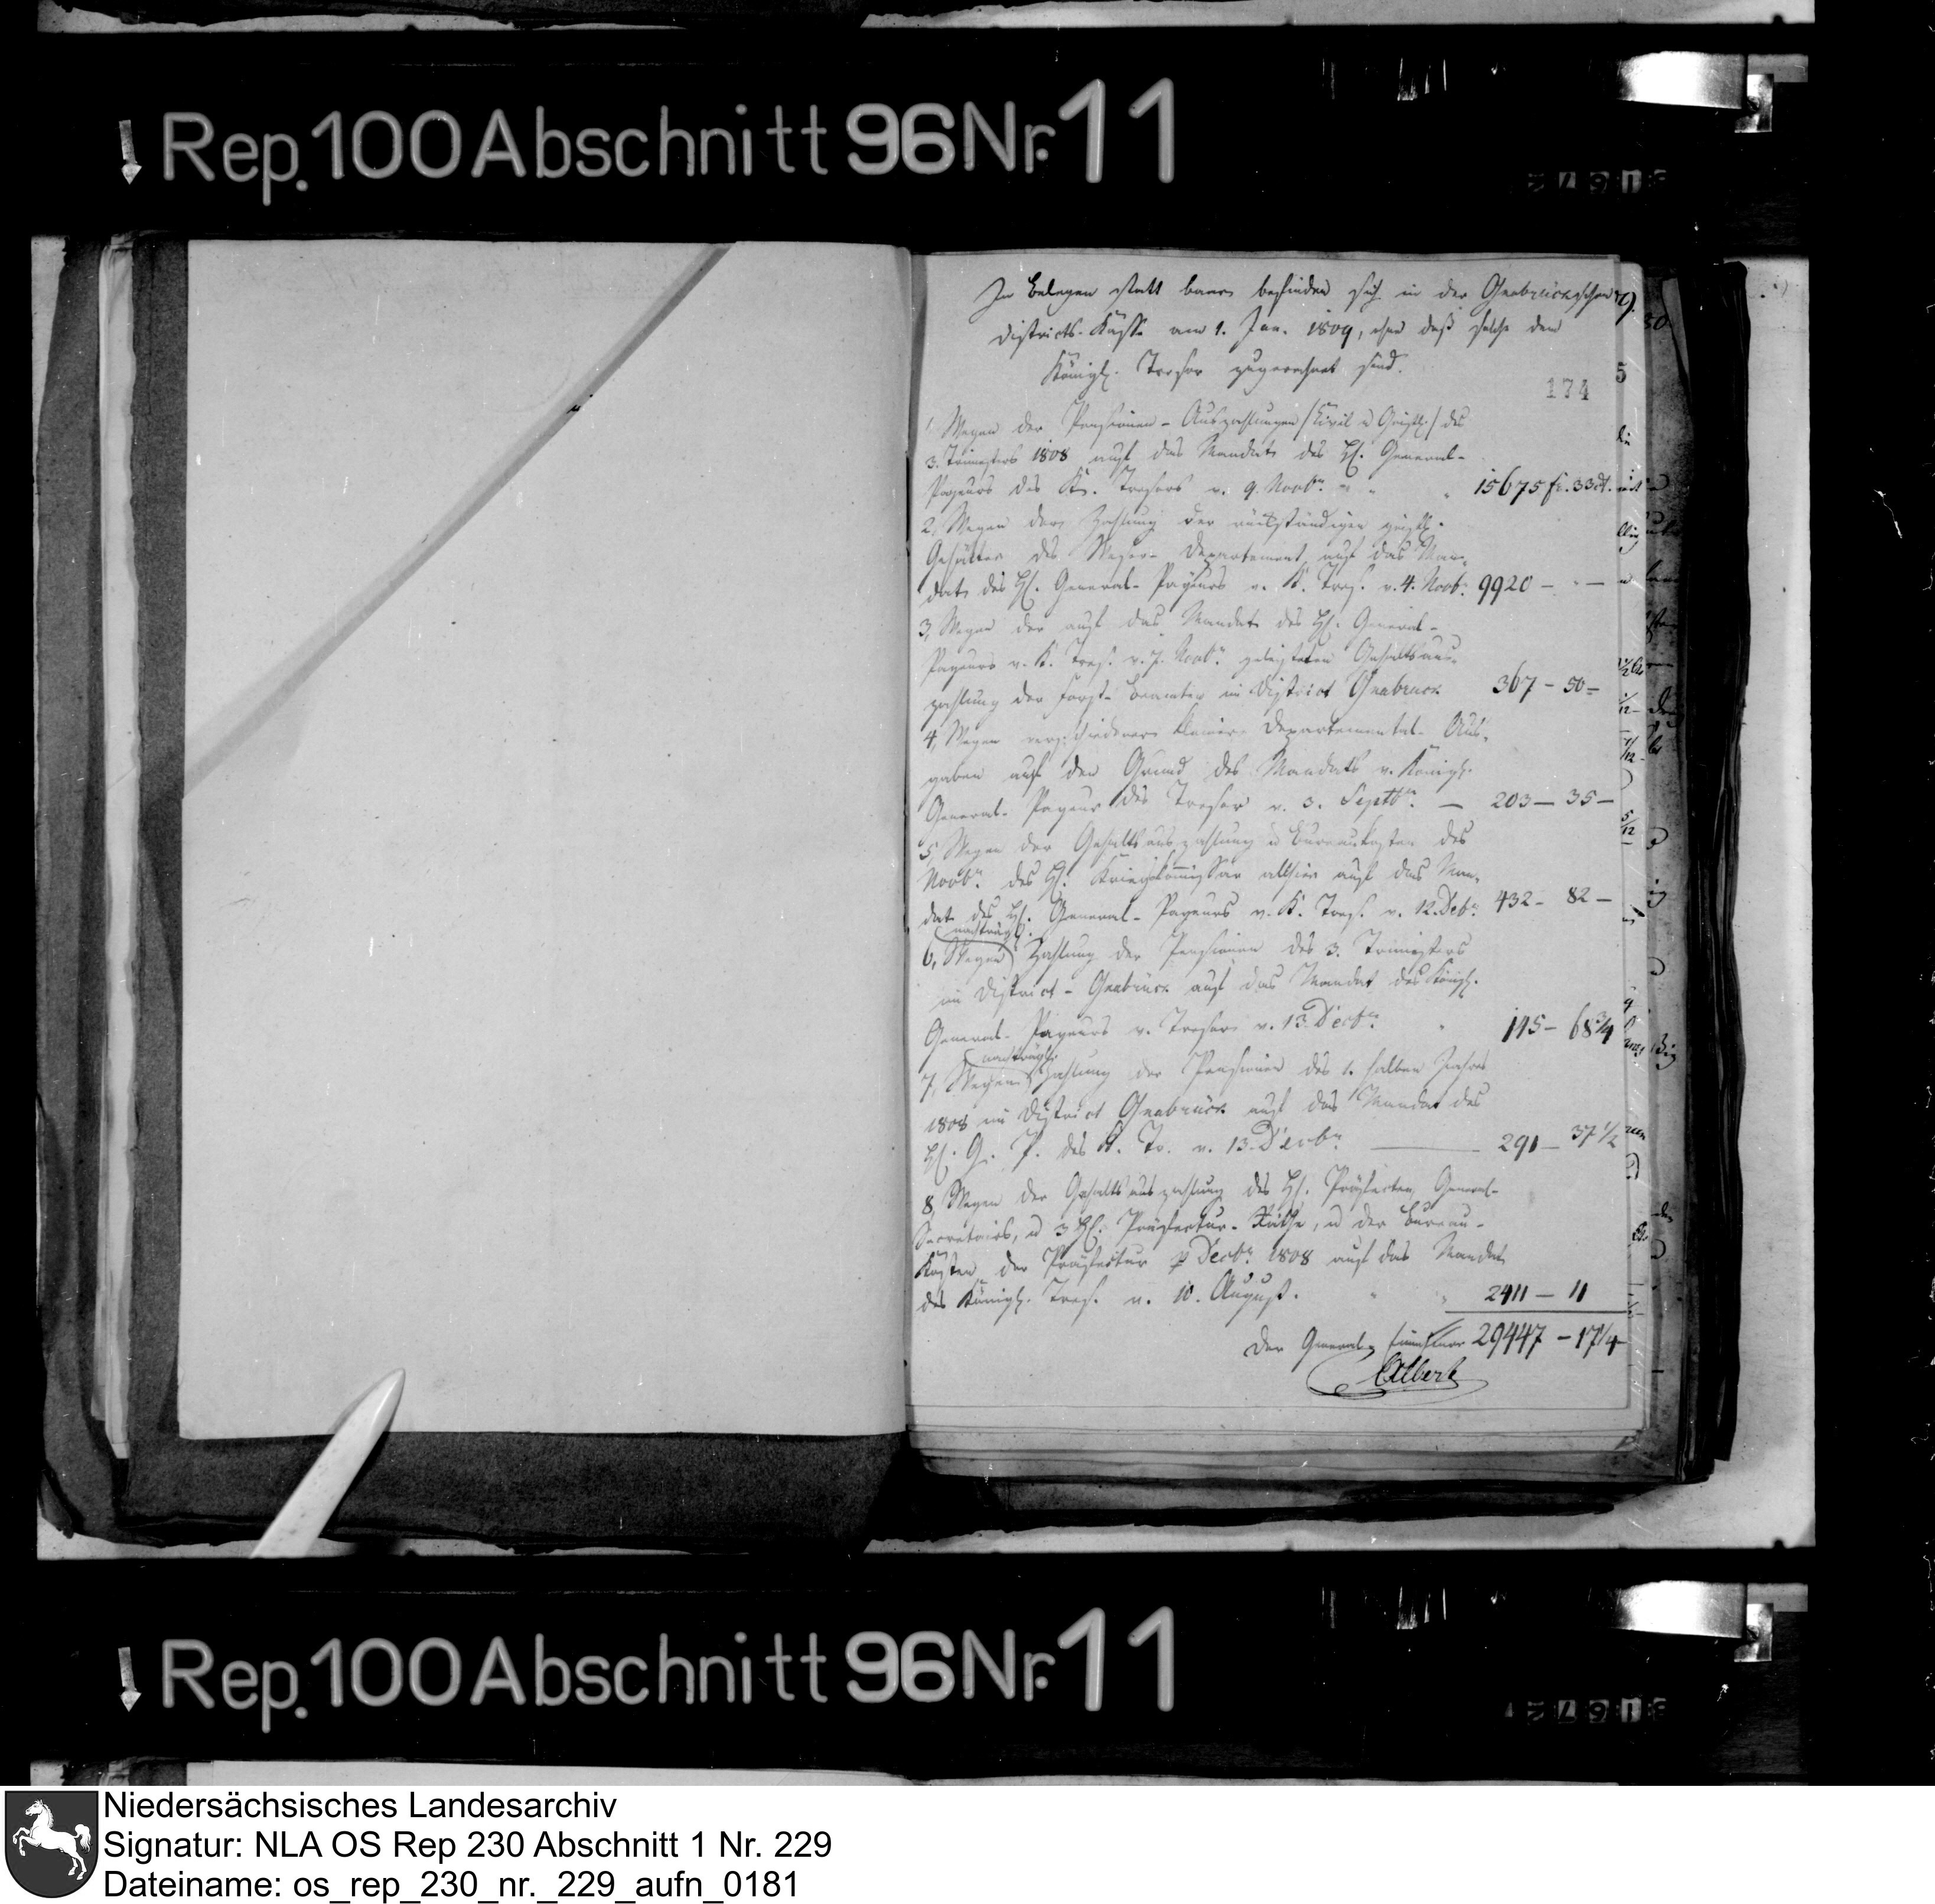 Rep. 100 Abschnitt 96 Nr. 11
In Belegen statt baar befinden sich in der Osnabrückschen
Districts-Kasse am 1. Jan. 1809, ohne daß solche dem
Königl. Tresor zugerechnet sind.
174
1, Wegen der Pensionen-Auszahlungen /Civil u Geistl:/ des
3. Trimesters 1808 auf das Mandat des H. General-
Payeurs des K. Tresors v. 9. Novbr. " " " 15675 fr. 33 ct.
2, Wegen der Zahlung der rückständigen geistl.
Gehälter des Weser-Departement auf das Man-
dat des H. General-Payeurs v. K. Tres. v. 4. Novb. 9920 - " -
3, Wegen der auf das Mandat des H. General-
Payeurs v. K. Tres. v. 7. Novbr. geleisteten Gehaltsaus-
zahlung der Forst-Beamten im District Osnabrück 367 - 50 -
4, Wegen verschiedener kleiner Departemental-Aus-
gaben auf den Grund des Mandats v. Königl.
General-Payeur des Tresor v. 3. Septbr. — 203 — 35 —
5, Wegen der Gehaltsauszahlung u Bureaukosten des
Novbr. des H. Kriegskommissar allhier auf das Man-
dat des H. General-Payeurs v. K. Tres. v. 12. Debr. 432 - 82 —
6, Wegen nachträgl. Zahlung der Pensionen des 3. Trimesters
im District-Osnabrück auf das Mandat des Königl.
General-Payeurs v. Tresor v. 13. Decbr. " 145 - 68 3/4
7, Wegen nachträgl. Zahlung der Pensionen des 1. halben Jahres
1808 im District Osnabrück auf das Mandat des
H. G. P. des K. Tr. v. 13. Decbr. — 291 — 37 1/2
8, Wegen der Gehaltsauszahlung des H. Präfecten, General-
Secretairs, u 3 H. Präfectur-Räthe, u der Bureau-
Kosten der Präfectur p Decbr. 1808 auf das Mandat
des Königl. Tres. v. 10. August. " " 2411 — 11
Der General-Einnehmer 29447 - 17 1/4
Albert
Rep. 100 Abschnitt 96 Nr. 11
Niedersächsisches Landesarchiv
Signatur: NLA OS Rep 230 Abschnitt 1 Nr. 229
Dateiname: os_rep_230_nr._229_aufn_0181